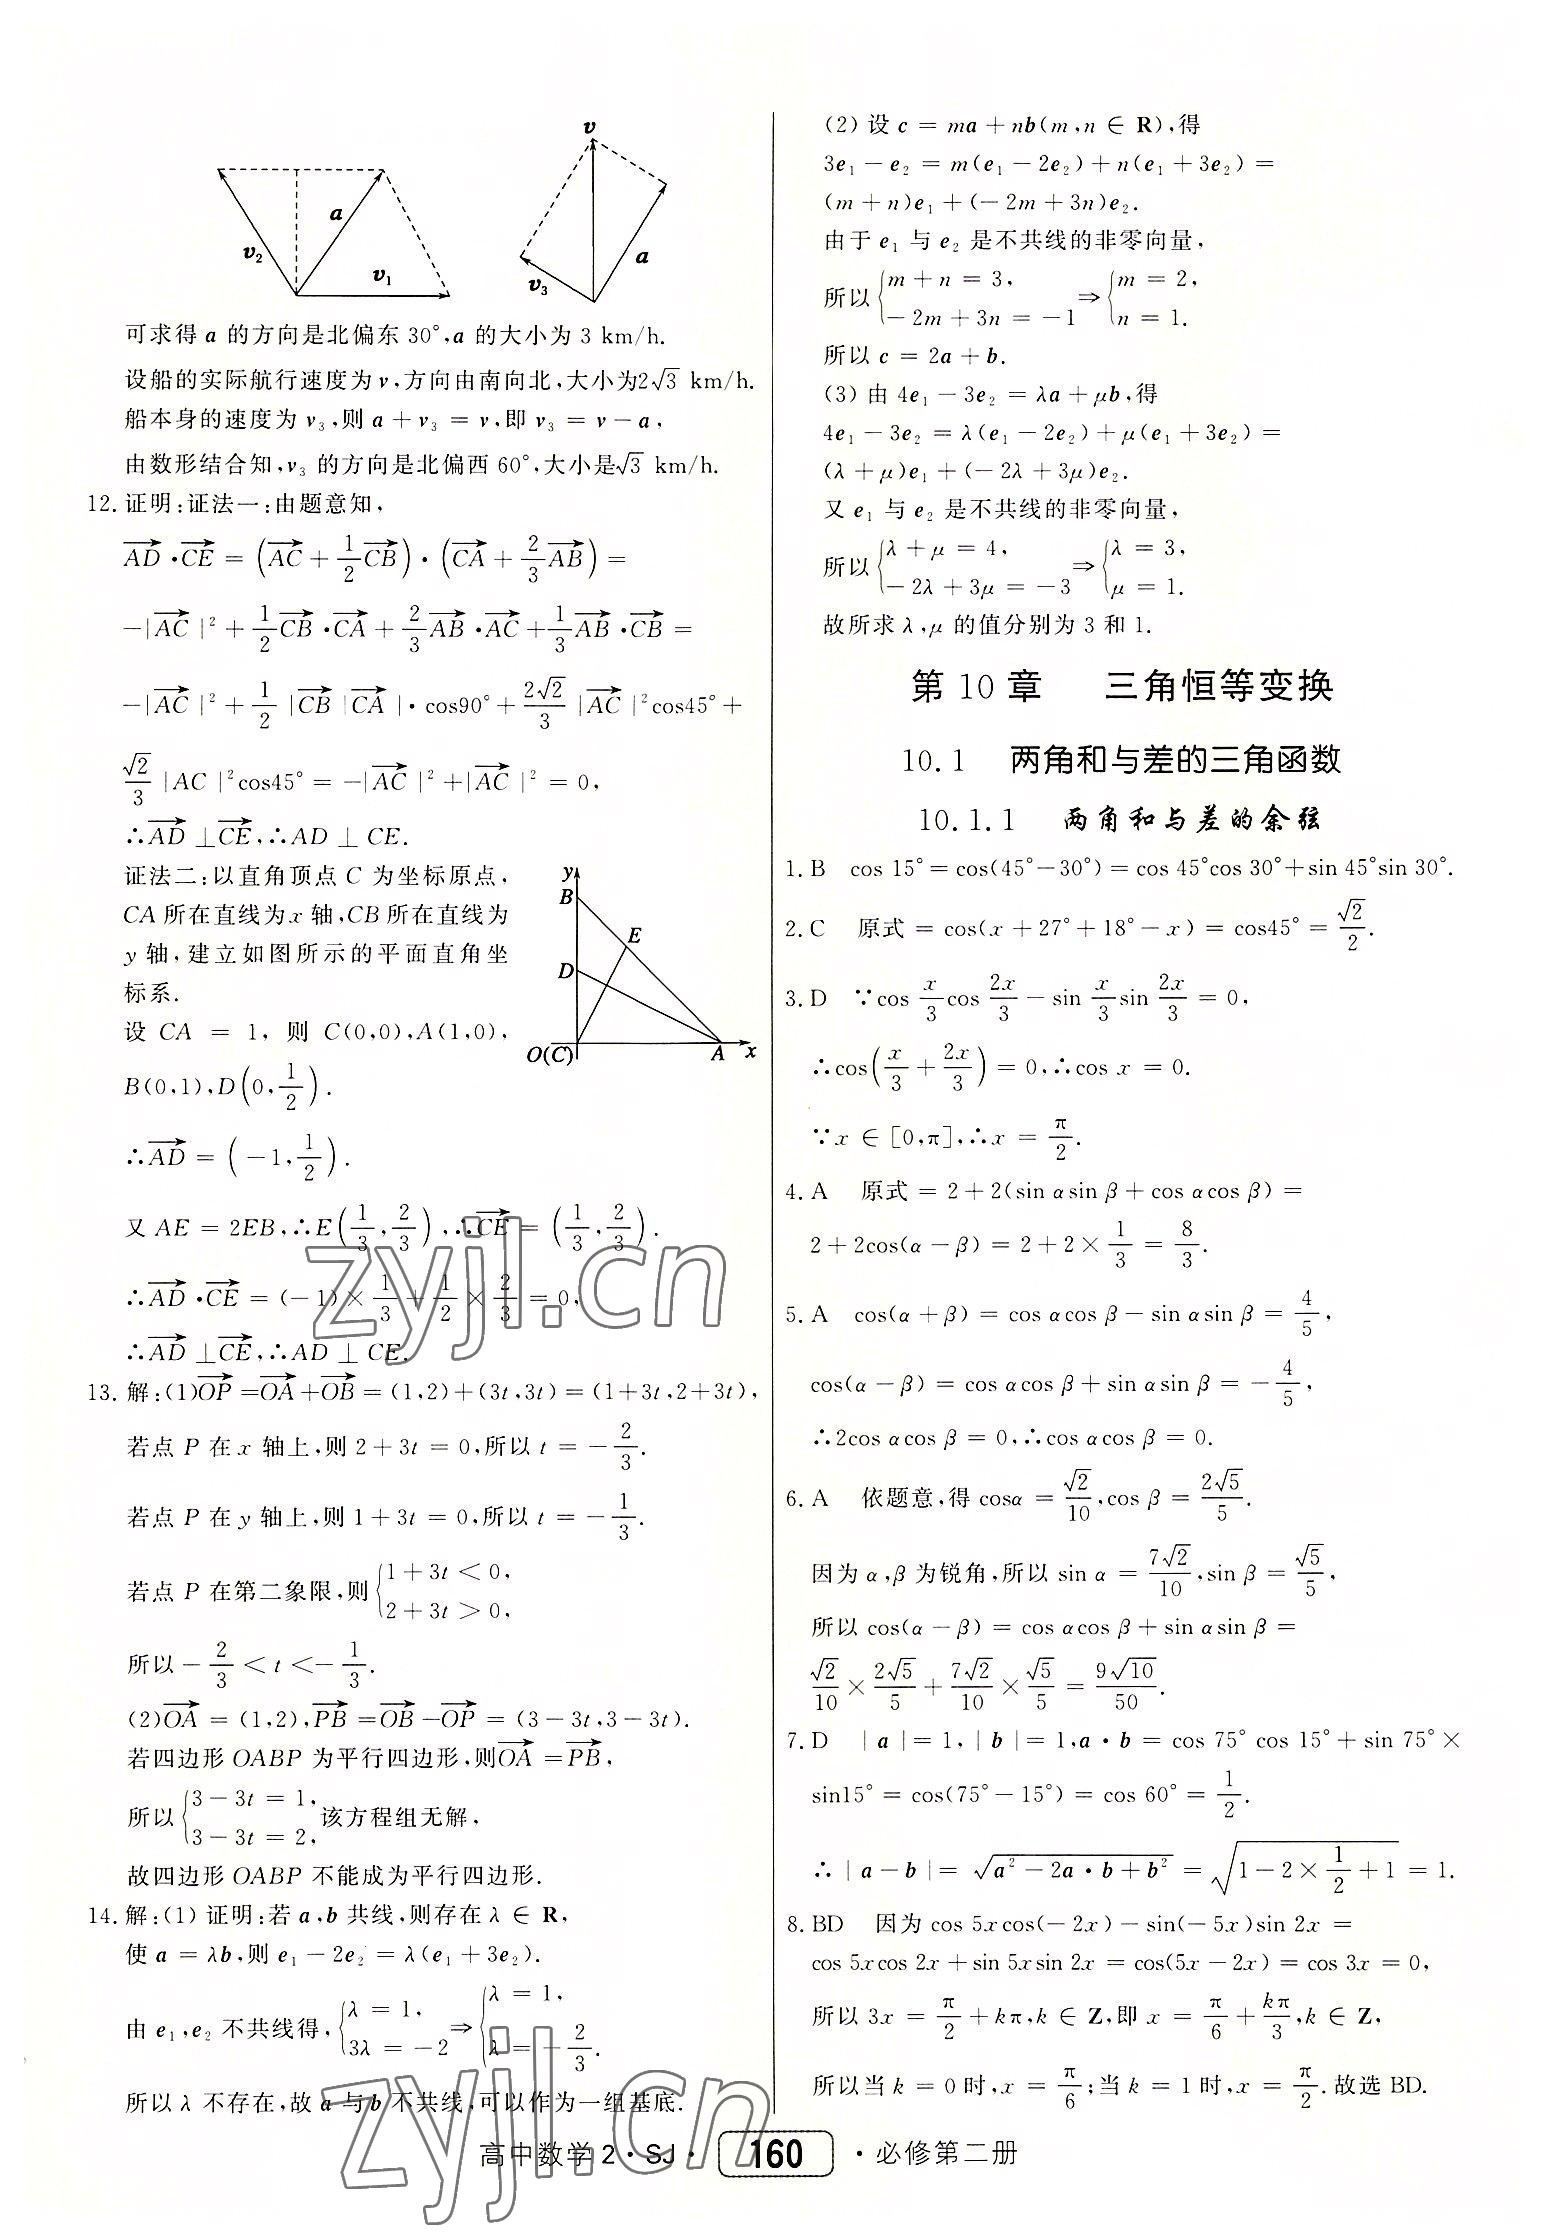 v₂ a v₁
v v₃ a
可求得 a 的方向是北偏东 30°,a 的大小为 3 km/h.
设船的实际航行速度为 v,方向由南向北,大小为2√3 km/h.
船本身的速度为 v₃,则 a + v₃ = v,即 v₃ = v − a,
由数形结合知,v₃ 的方向是北偏西 60°,大小是√3 km/h.
12. 证明:证法一:由题意知,
AD→ · CE→ = (AC→ + 1/2 CB→) · (CA→ + 2/3 AB→) =
−|AC→|² + 1/2 CB→ · CA→ + 2/3 AB→ · AC→ + 1/3 AB→ · CB→ =
−|AC→|² + 1/2 |CB→||CA→| · cos90° + 2√2/3 |AC→|²cos45° +
√2/3 |AC|²cos45° = −|AC→|² + |AC→|² = 0,
∴AD→ ⊥ CE→,∴AD ⊥ CE.
证法二:以直角顶点 C 为坐标原点,
CA 所在直线为 x 轴,CB 所在直线为
y 轴,建立如图所示的平面直角坐
标系.
设 CA = 1, 则 C(0,0),A(1,0),
B(0,1),D(0,1/2).
y B E D O(C) A x
∴AD→ = (−1,1/2).
又 AE = 2EB,∴E(1/3,2/3),∴CE→ = (1/3,2/3).
∴AD→ · CE→ = (−1) × 1/3 + 1/2 × 2/3 = 0,
∴AD→ ⊥ CE→,∴AD ⊥ CE.
13. 解:(1)OP→ = OA→ + OB→ = (1,2) + (3t,3t) = (1+3t,2+3t),
若点 P 在 x 轴上,则 2 + 3t = 0,所以 t = −2/3.
若点 P 在 y 轴上,则 1 + 3t = 0,所以 t = −1/3.
若点 P 在第二象限,则 {1 + 3t < 0, 2 + 3t > 0,
所以 −2/3 < t < −1/3.
(2)OA→ = (1,2),PB→ = OB→ − OP→ = (3 − 3t,3 − 3t).
若四边形 OABP 为平行四边形,则OA→ = PB→,
所以 {3 − 3t = 1, 3 − 3t = 2, 该方程组无解,
故四边形 OABP 不能成为平行四边形.
14. 解:(1) 证明:若 a,b 共线,则存在 λ ∈ R,
使 a = λb,则 e₁ − 2e₂ = λ(e₁ + 3e₂).
由 e₁,e₂ 不共线得, {λ = 1, 3λ = −2 ⇒ {λ = 1, λ = −2/3.
所以 λ 不存在,故 a 与 b 不共线,可以作为一组基底.
(2) 设 c = ma + nb(m,n ∈ R),得
3e₁ − e₂ = m(e₁ − 2e₂) + n(e₁ + 3e₂) =
(m + n)e₁ + (− 2m + 3n)e₂.
由于 e₁ 与 e₂ 是不共线的非零向量,
所以 {m + n = 3, − 2m + 3n = −1 ⇒ {m = 2, n = 1.
所以 c = 2a + b.
(3) 由 4e₁ − 3e₂ = λa + μb,得
4e₁ − 3e₂ = λ(e₁ − 2e₂) + μ(e₁ + 3e₂) =
(λ + μ)e₁ + (− 2λ + 3μ)e₂.
又 e₁ 与 e₂ 是不共线的非零向量,
所以 {λ + μ = 4, − 2λ + 3μ = −3 ⇒ {λ = 3, μ = 1.
故所求 λ,μ 的值分别为 3 和 1.
第 10 章 三角恒等变换
10.1 两角和与差的三角函数
10.1.1 两角和与差的余弦
1. B cos 15° = cos(45° − 30°) = cos 45°cos 30° + sin 45°sin 30°.
2. C 原式 = cos(x + 27° + 18° − x) = cos45° = √2/2.
3. D ∵cos x/3 cos 2x/3 − sin x/3 sin 2x/3 = 0,
∴cos(x/3 + 2x/3) = 0,∴cos x = 0.
∵x ∈ [0,π],∴x = π/2.
4. A 原式 = 2 + 2(sin αsin β + cos αcos β) =
2 + 2cos(α − β) = 2 + 2 × 1/3 = 8/3.
5. A cos(α + β) = cos αcos β − sin αsin β = 4/5,
cos(α − β) = cos αcos β + sin αsin β = −4/5,
∴2cos αcos β = 0,∴cos αcos β = 0.
6. A 依题意,得 cosα = √2/10,cos β = 2√5/5.
因为 α,β 为锐角,所以 sin α = 7√2/10,sin β = √5/5,
所以 cos(α − β) = cos αcos β + sin αsin β =
√2/10 × 2√5/5 + 7√2/10 × √5/5 = 9√10/50.
7. D |a| = 1,|b| = 1,a · b = cos 75° cos 15° + sin 75° ×
sin15° = cos(75° − 15°) = cos 60° = 1/2.
∴|a − b| = √(a² − 2a · b + b²) = √(1 − 2 × 1/2 + 1) = 1.
8. BD 因为 cos 5xcos(− 2x) − sin(− 5x)sin 2x =
cos 5xcos 2x + sin 5xsin 2x = cos(5x − 2x) = cos 3x = 0,
所以 3x = π/2 + kπ,k ∈ Z,即 x = π/6 + kπ/3,k ∈ Z,
所以当 k = 0 时,x = π/6;当 k = 1 时,x = π/2.故选 BD.
高中数学 2 · SJ · 160 · 必修第二册
zyjl.cn
zyjl.cn